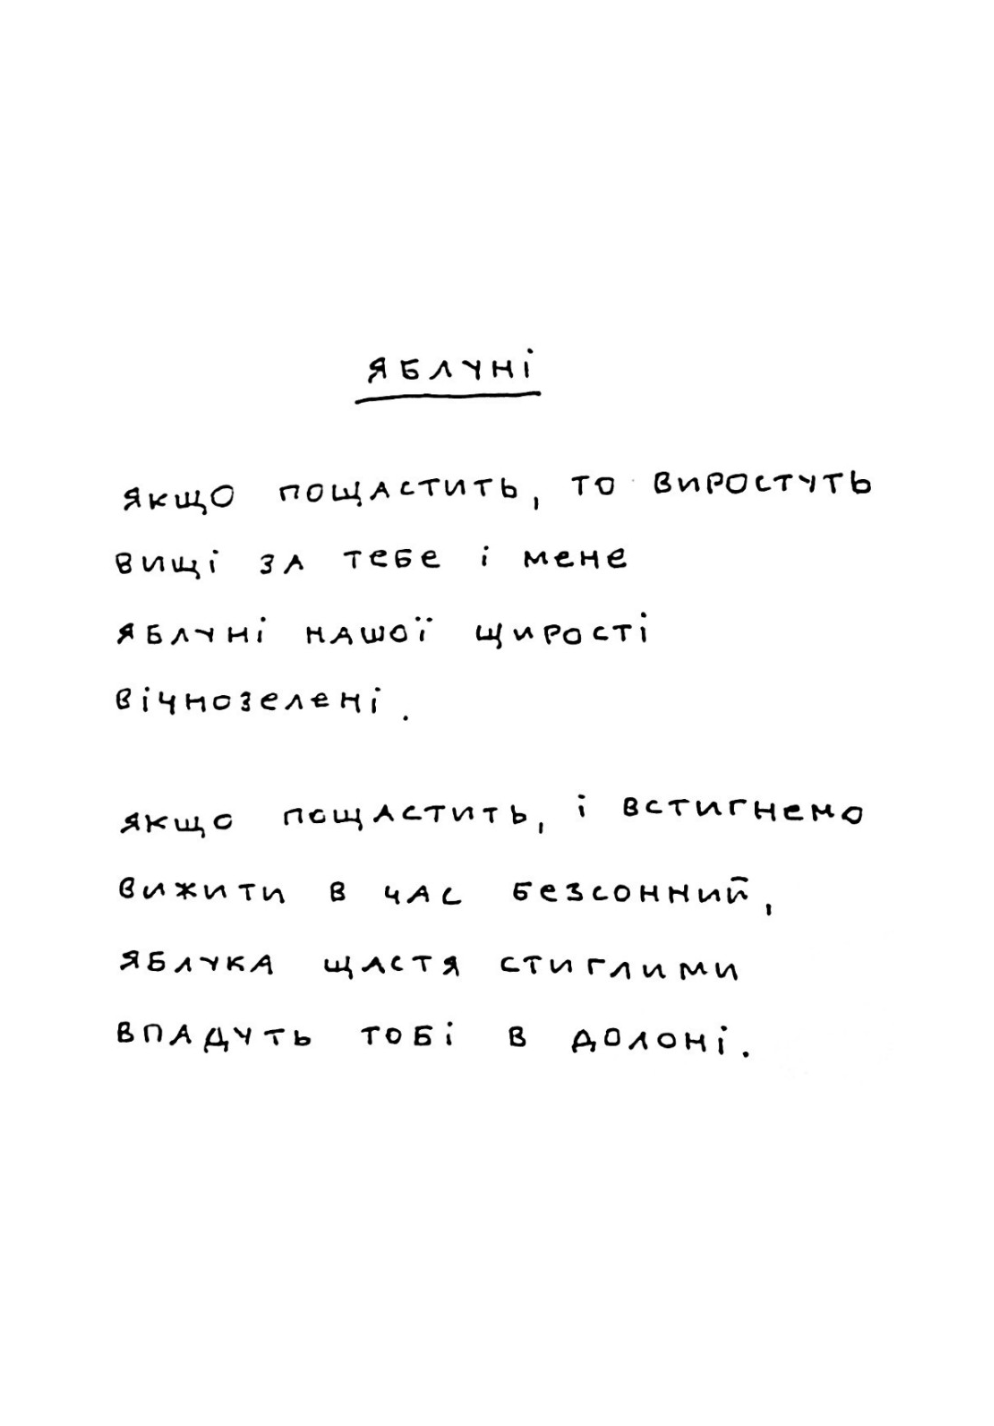 яблуні
якщо пощастить, то виростуть
вищі за тебе і мене
яблуні нашої щирості
вічнозелені.
якщо пощастить, і встигнемо
вижити в час безсонний,
яблука щастя стиглими
впадуть тобі в долоні.